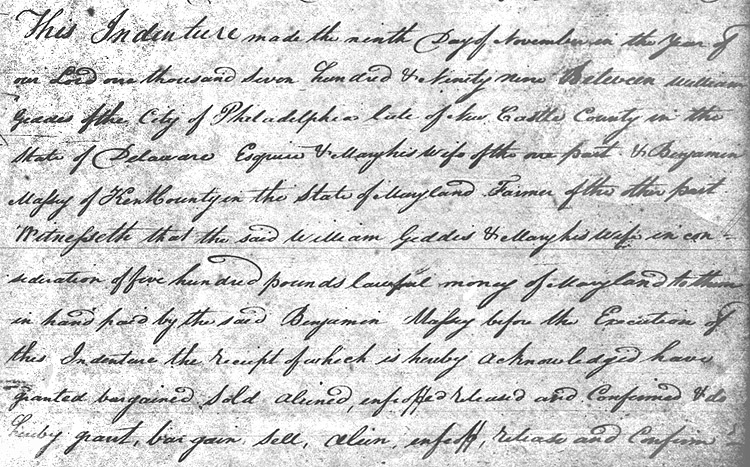 This Indenture made the ninth Day of November in the Year of
our Lord one thousand Seven hundred & Ninety nine Between William
Geddes of the City of Philadelphia late of New Castle County in the
State of Delaware Esquire & Mary his Wife of the one part & Benjamin
Massey of Kent County in the State of Maryland Farmer of the other part
Witnesseth that the said William Geddes & Mary his Wife in con-
sideration of five hundred pounds lawful money of Maryland to them
in hand paid by the said Benjamin Massey before the Execution of
this Indenture the receipt of which is hereby acknowledged have
granted bargained, Sold aliened, infeoffed released and Confirmed & do
hereby grant, bargain Sell, alien, infeoff, release and Confirm